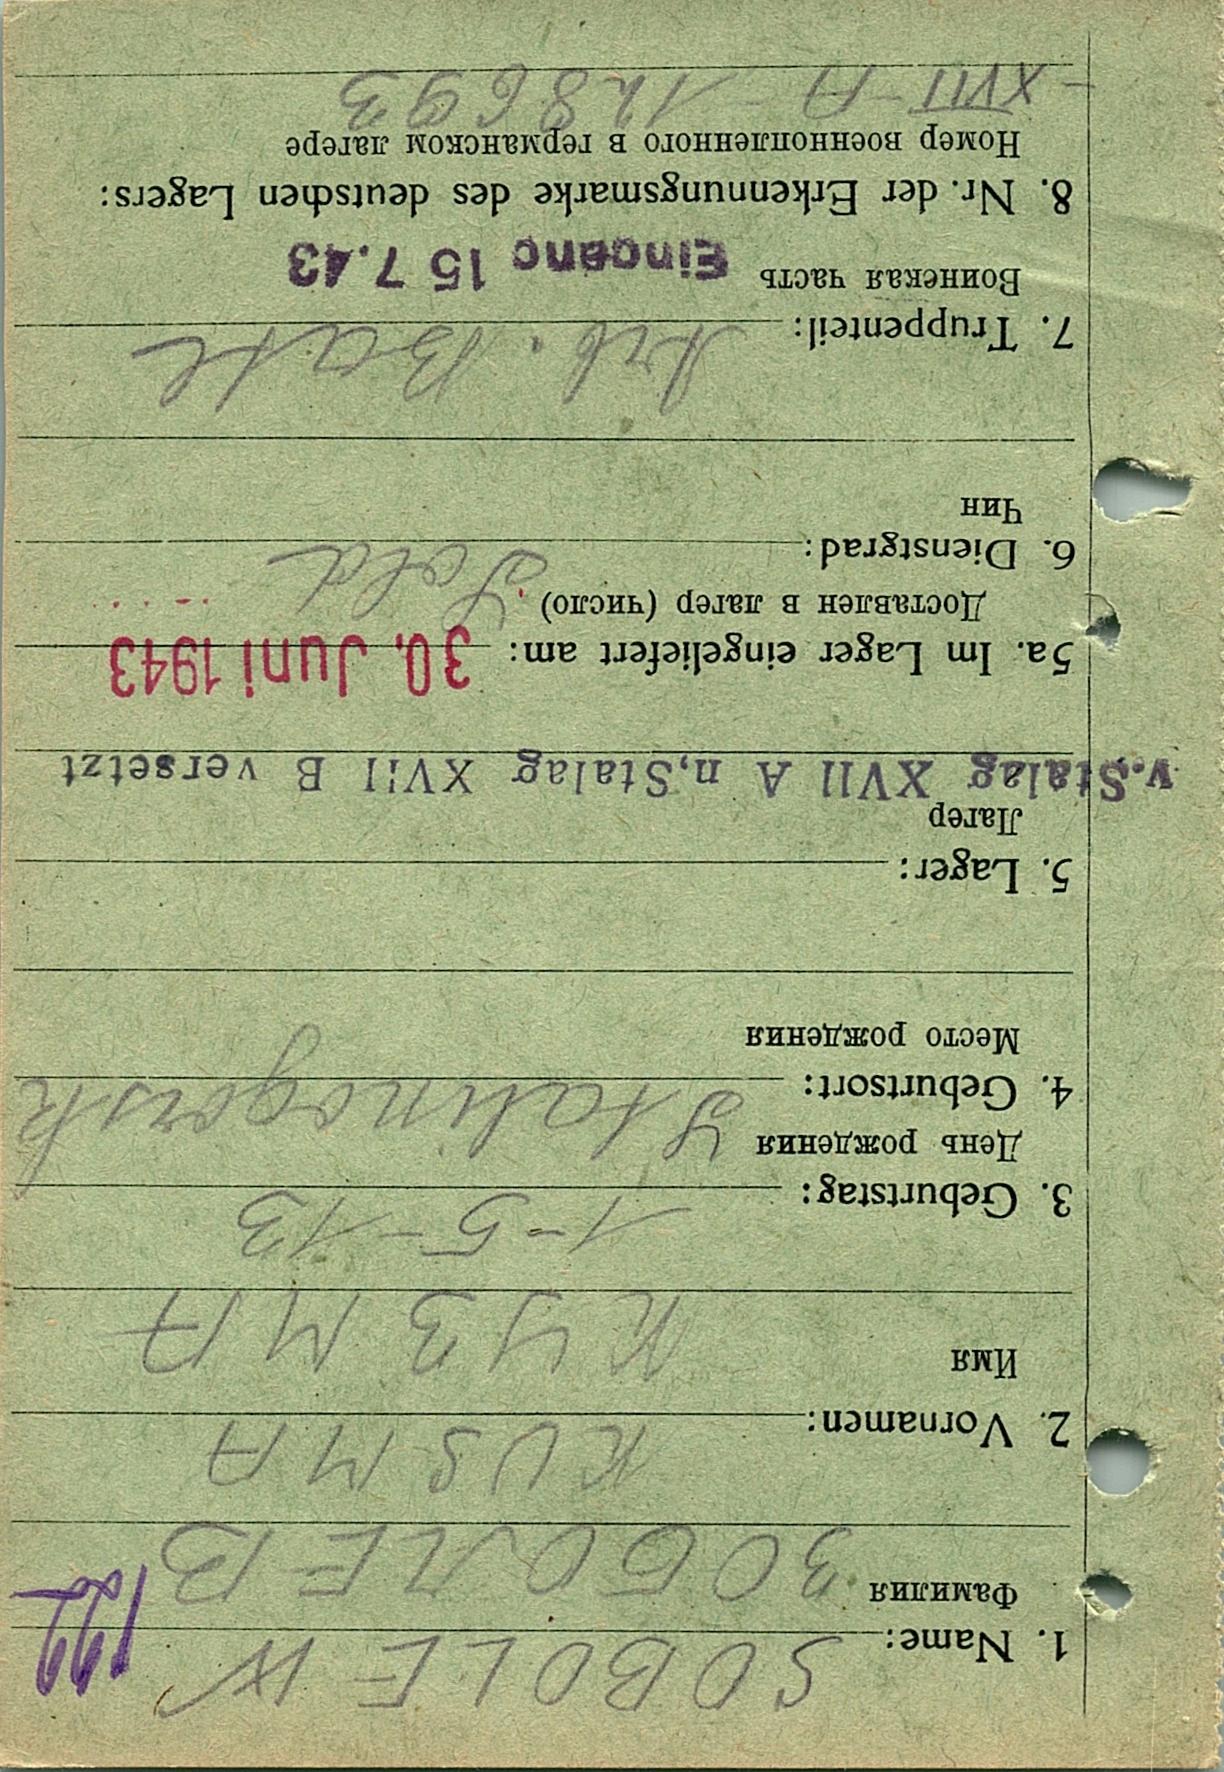 1. Name: SOBOLEW
Фамилия ЗОБОЛЕВ
2. Vornamen: KUSMA
Имя КУЗМА
3. Geburtstag: 1-5-13
День рождения
4. Geburtsort: Stalinogorsk
Место рождения
5. Lager:
Лагер
v.Stalag XVII A n,Stalag XVII B versetzt
5a. Im Lager eingeliefert am: 30. Juni 1943
Доставлен в лагер (число)
6. Dienstgrad: Sold
Чин
7. Truppenteil: Arb. Batl
Воинская часть Eingang 15 7.43
8. Nr. der Erkennungsmarke des deutschen Lagers:
Номер военнопленного в германском лагере
- XVII - A - 128693